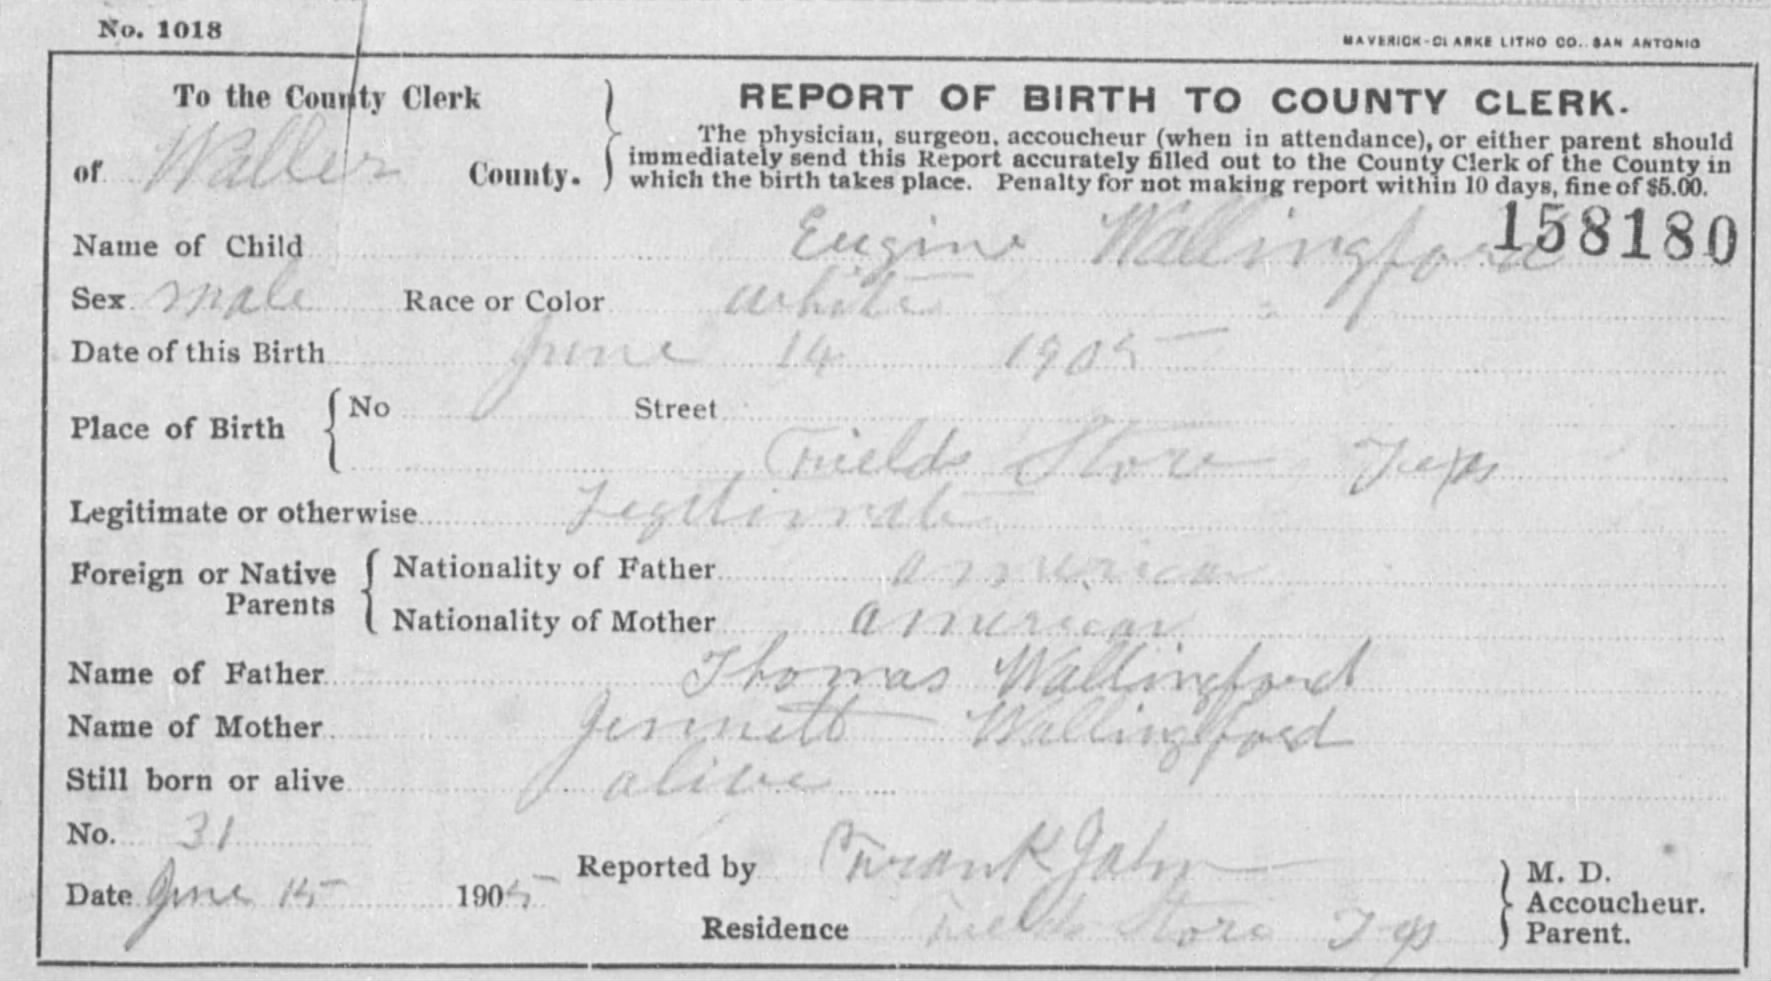 No. 1018
MAVERICK-CLARKE LITHO CO., SAN ANTONIO
To the County Clerk
of Waller County.
REPORT OF BIRTH TO COUNTY CLERK.
The physician, surgeon, accoucheur (when in attendance), or either parent should
immediately send this Report accurately filled out to the County Clerk of the County in
which the birth takes place. Penalty for not making report within 10 days, fine of $5.00.
158180
Name of Child Eugine Wallingford
Sex male Race or Color white
Date of this Birth June 14 1905
Place of Birth No Street
Fields Store Texas
Legitimate or otherwise Legitimate
Foreign or Native Parents Nationality of Father american
Nationality of Mother american
Name of Father Thomas Wallingford
Name of Mother Jennett Wallingford
Still born or alive alive
No. 31
Date June 15 1905
Reported by Frank Jahn
Residence Fields Store Tex
M. D.
Accoucheur.
Parent.